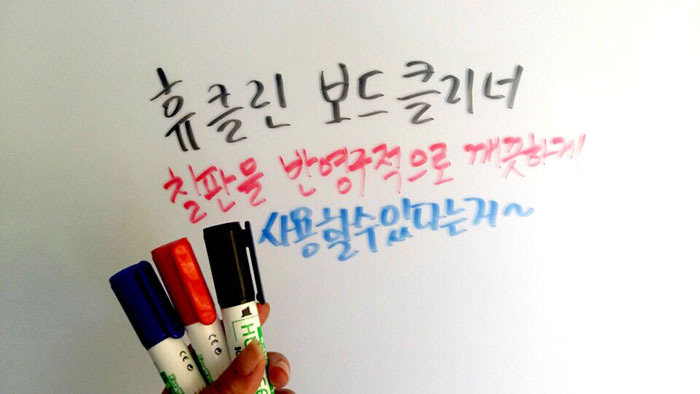 휴클린 보드클리너
칠판을 반영구적으로 깨끗하게
사용할수있다는거~